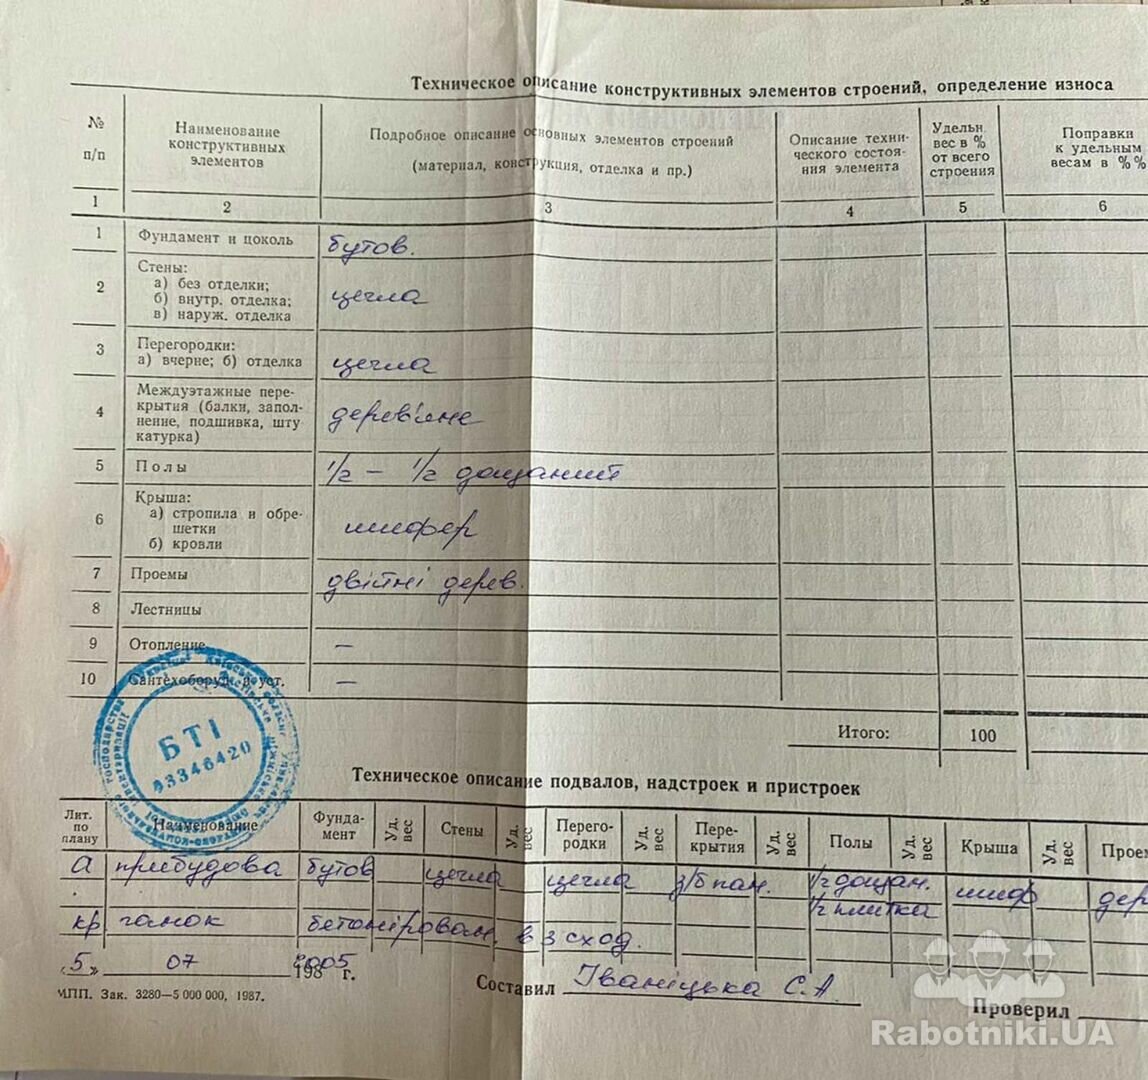 Техническое описание конструктивных элементов строений, определение износа
№ п/п
Наименование конструктивных элементов
Подробное описание основных элементов строений (материал, конструкция, отделка и пр.)
Описание технического состояния элемента
Удельн. вес в % от всего строения
Поправки к удельным весам в %%
1 2 3 4 5 6
1 Фундамент и цоколь бутов.
2 Стены:
а) без отделки;
б) внутр. отделка; цегла
в) наруж. отделка
3 Перегородки:
а) вчерне; б) отделка цегла
4 Междуэтажные пере-
крытия (балки, запол- дерев'яне
нение, подшивка, шту
катурка)
5 Полы 1/2 — 1/2 дощаний
6 Крыша:
а) стропила и обре- шифер
шетки
б) кровли
7 Проемы двійні дерев.
8 Лестницы
9 Отопление —
10 Сантехоборуд. и уст. —
БТІ
03346420
Итого: 100
Техническое описание подвалов, надстроек и пристроек
Лит. по плану
Наименование
Фунда-мент
Уд. вес
Стены
Уд. вес
Перего-родки
Уд. вес
Пере-крытия
Уд. вес
Полы
Уд. вес
Крыша
Уд. вес
Проем
а прибудова бутов цегла цегла з/б пан. 1/2 дощан. шиф дер
1/2 плитка
кр ганок бетоніровам. в 3 сход.
„5" 07 198 2005 г.
Составил Іваніцька С.А.
МПП. Зак. 3280—5 000 000, 1987.
Проверил
Rabotniki.UA